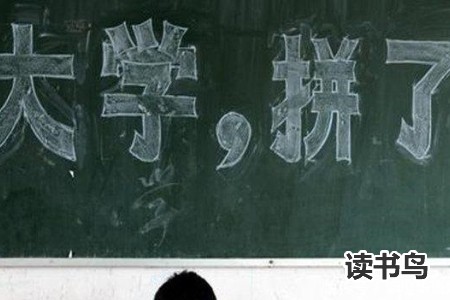 大学,拼了
读书鸟